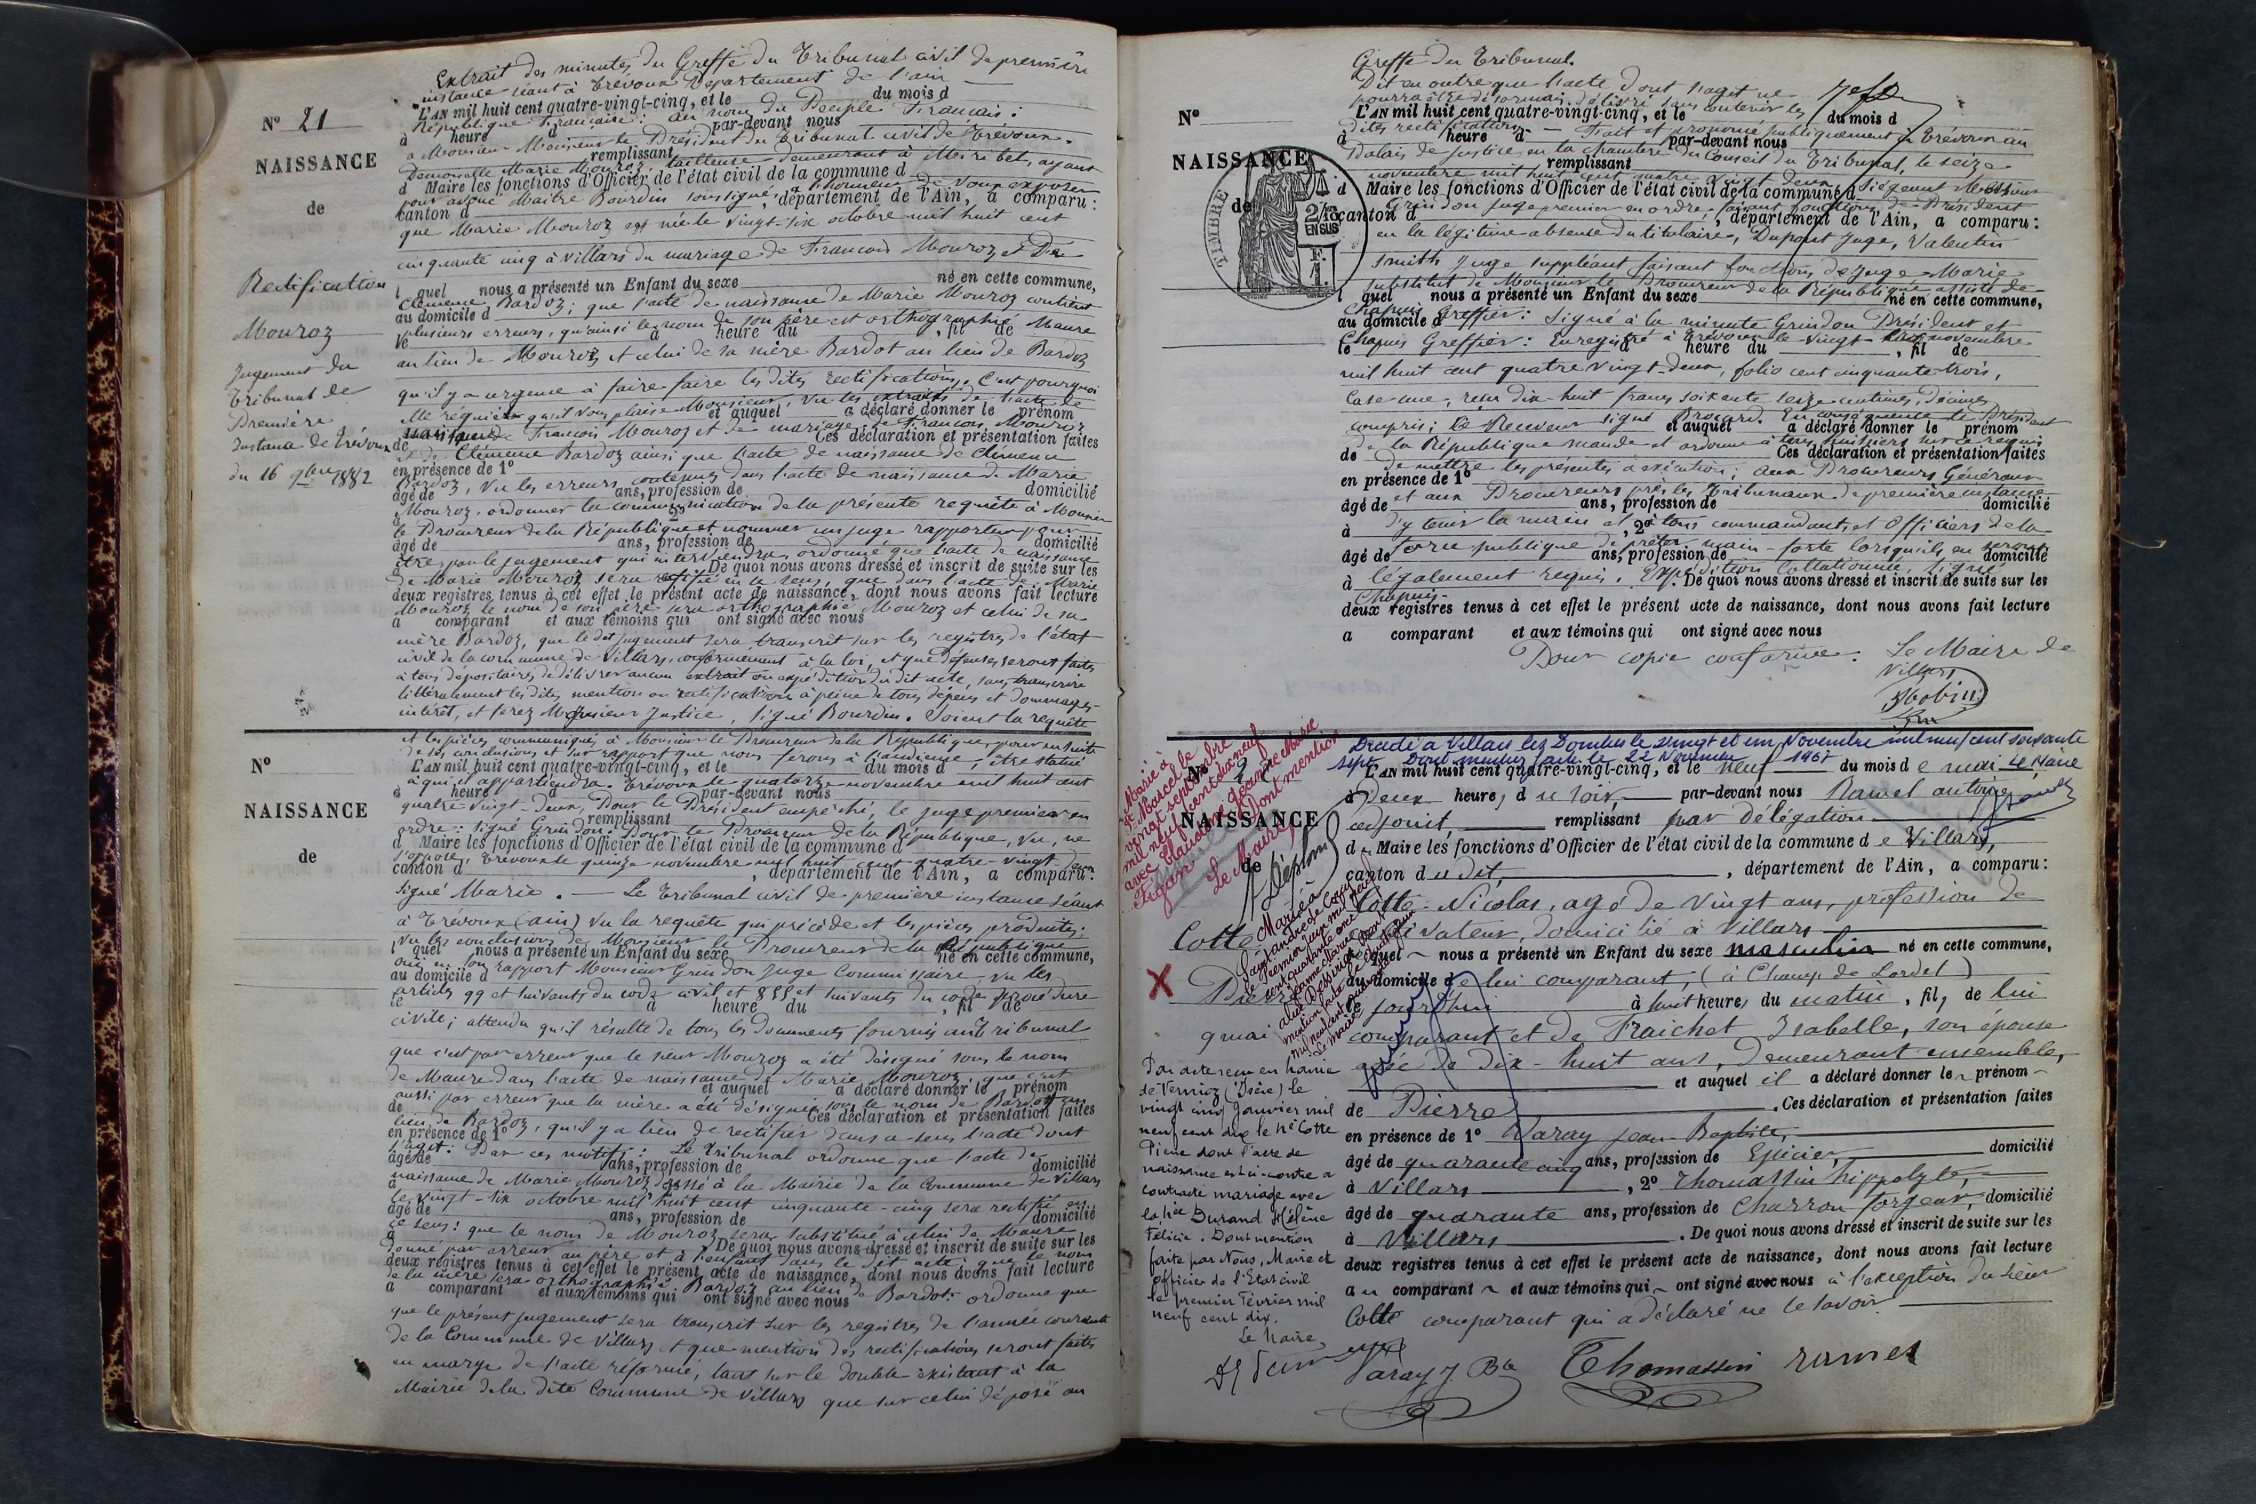 Extrait des minutes du Greffe du Tribunal civil de première
instance séant à Trévoux Département de l'ain
N° 21
L'AN mil huit cent quatre-vingt-cinq, et le du mois d
République Française: au nom du Peuple Français:
à heure d par-devant nous
à Monsieur Monsieur le Président du Tribunal civil de Trévoux.
NAISSANCE
remplissant
Demoiselle Marie Mouroz, tailleuse demeurant à Miribel, ayant
d Maire les fonctions d'Officier de l'état civil de la commune d
pour avoué Maître Bourdin soussigné, a l'honneur de vous exposer
de
canton d , département de l'Ain, a comparu:
que Marie Mouroz est née le vingt-six octobre mil huit cent
cinquante cinq à Villars du mariage de François Mouroz et De
Rectification
l quel nous a présenté un Enfant du sexe né en cette commune,
Clémence Bardoz; que l'acte de naissance de Marie Mouroz contient
au domicile d
plusieurs erreurs, qu'ainsi le nom de son père est orthographié Maure
Mouroz
le à heure du , fil de
au lieu de Mouroz et celui de sa mère Bardot au lieu de Bardoz
Jugement du
qu'il y a urgence à faire faire les dites rectifications. C'est pourquoi
Tribunal de
elle requiert qu'il vous plaise Monsieur, vu les extraits de l'acte de
et auquel a déclaré donner le prénom
Première
naissance de François Mouroz et de mariage de François Mouroz
Instance de Trévoux
de Ces déclaration et présentation faites
et de Clémence Bardoz ainsi que l'acte de naissance de Clémence
du 16 9bre 1882
en présence de 1°
Bardoz, Vu les erreurs contenues dans l'acte de naissance de Marie
âgé de ans, profession de domicilié
Mouroz, ordonner la communication de la présente requête à Monsieur
à , 2°
le Procureur de la République et nommer un juge rapporteur pour
âgé de ans, profession de domicilié
être par le jugement qui interviendra, ordonné que l'acte de naissance
à De quoi nous avons dressé et inscrit de suite sur les
de Marie Mouroz sera rectifié en ce sens, que dans l'acte de Marie
deux registres tenus à cet effet le présent acte de naissance, dont nous avons fait lecture
Mouroz le nom de son père sera orthographié Mouroz et celui de sa
a comparant et aux témoins qui ont signé avec nous
mère Bardoz, que le dit jugement sera transcrit sur les registres de l'état
civil de la commune de Villars, conformément à la loi, et que défenses seront faites
à tous dépositaires de délivrer aucun extrait ou expédition du dit acte, sans transcrire
littéralement les dites mention ou rectification à peine de tous dépens et dommages-
intérêt, et ferez Monsieur Justice, signé Bourdin. Soient la requête
et les pièces communiqués à Monsieur le Procureur de la République, pour ensuite
de ses conclusions et sur rapport que nous ferons à l'audience, être statué
N°
L'AN mil huit cent quatre-vingt-cinq, et le du mois d
à qui il appartiendra. Trévoux le quatorze novembre mil huit cent
à heure d par-devant nous
quatre vingt-deux, Pour le Président empêché, le Juge premier en
NAISSANCE
remplissant
ordre: signé Grindon. Pour le Procureur de la République, vu, ne
d Maire les fonctions d'Officier de l'état civil de la commune d
s'oppose, Trévoux le quinze novembre mil huit cent quatre-vingt-deux
de
canton d , département de l'Ain, a comparu:
signé Marie. — Le Tribunal civil de première instance séant
à Trévoux (ain) Vu la requête qui précède et les pièces produites;
Vu les conclusions de Monsieur le Procureur de la République
l quel nous a présenté un Enfant du sexe né en cette commune,
ouï en son rapport Monsieur Grindon Juge Commissaire, vu les
au domicile d
articles 99 et suivants du code civil et 855 et suivants du code de procédure
le à heure du , fil de
civile; attendu qu'il résulte de tous les documents fournis au Tribunal
que c'est par erreur que le sieur Mouroz a été désigné sous le nom
de Maure dans l'acte de naissance de Marie Mouroz; que c'est
et auquel a déclaré donner le prénom
aussi par erreur que la mère a été désignée sous le nom de Bardot au
de Ces déclaration et présentation faites
lieu de Bardoz, qu'il y a lieu de rectifier dans ce sens l'acte dont
en présence de 1°
s'agit. Par ces motifs: Le Tribunal ordonne que l'acte de
âgé de ans, profession de domicilié
naissance de Marie Mouroz dressé à la Mairie de la Commune de Villars
à
le vingt-six octobre mil huit cent cinquante-cinq sera rectifié en
âgé de ans, profession de domicilié
ce sens: que le nom de Mouroz sera substitué à celui de Maure
à De quoi nous avons dressé et inscrit de suite sur les
donné par erreur au père et à l'enfant dans le dit acte, que le nom
deux registres tenus à cet effet le présent acte de naissance, dont nous avons fait lecture
de la mère sera orthographié Bardoz au lieu de Bardot: ordonne que
a comparant et aux témoins qui ont signé avec nous
que le présent jugement sera transcrit sur les registres de l'année courante
de la Commune de Villars et que mention des rectifications seront faites
en marge de l'acte réformé, tant sur le double existant à la
Mairie de la dite Commune de Villars que sur celui déposé au
Greffe du Tribunal.
Dit en outre que l'acte dont s'agit ne
pourra être désormais délivré sans contenir les
N°
L'AN mil huit cent quatre-vingt-cinq, et le du mois d
dites rectifications — Fait et prononcé publiquement à Trévoux au
à heure d par-devant nous
Palais de Justice en la chambre du Conseil du Tribunal, le seize
NAISSANCE
remplissant
novembre mil huit cent quatre vingt deux, Siégeant Messieurs
d Maire les fonctions d'Officier de l'état civil de la commune d
TIMBRE
2/10 EN SUS
F. 1.
Grindon Juge premier en ordre, faisant fonctions de Président
de
canton d , département de l'Ain, a comparu:
en la légitime absence du titulaire, Dupont Juge, Valentin
Smith Juge suppléant faisant fonctions de Juge Marie
substitut de Monsieur le Procureur de la République assisté de
l quel nous a présenté un Enfant du sexe né en cette commune,
Chapuis Greffier: Signé à la minute Grindon Président et
au domicile d
Chapuis Greffier: Enregistré à Trévoux le vingt-huit novembre
le à heure du , fil de
mil huit cent quatre vingt-deux, folio cent cinquante-trois,
Case une, reçu dix-huit francs soixante seize centimes, décimes
compris; Le Receveur signé Brocard. En conséquence le Président
et auquel a déclaré donner le prénom
de la République mande et ordonne à tous huissiers sur ce requis
de Ces déclaration et présentation faites
de mettre les présentes à exécution; aux Procureurs Généraux
en présence de 1°
et aux Procureurs près les Tribunaux de première instance
âgé de ans, profession de domicilié
d'y tenir la main et à tous commandants et Officiers de la
à , 2°
force publique de prêter main-forte lorsqu'ils en seront
âgé de ans, profession de domicilié
légalement requis. Expédition Collationnée, signé
à De quoi nous avons dressé et inscrit de suite sur les
Chapuis
deux registres tenus à cet effet le présent acte de naissance, dont nous avons fait lecture
a comparant et aux témoins qui ont signé avec nous
Pour copie conforme. Le Maire de
Villars
Décédé à Villars les Dombes le vingt et un Novembre mil neuf cent soixante
sept Dont mention faite le 22 Novembre 1967 Le Maire
N° 22
L'AN mil huit cent quatre-vingt-cinq, et le neuf du mois de mai
à Deux heures du soir, par-devant nous Ramel antoine,
NAISSANCE
adjoint, remplissant par délégation
du Maire les fonctions d'Officier de l'état civil de la commune de Villars,
de
canton du dit, département de l'Ain, a comparu:
Marié à
St Marcel le
vingt septembre
mil neuf cent dix neuf
avec Claudine Jeanne Marie
Dont mention
Le Maire,
Cotte Nicolas, agé de vingt ans, profession de
cultivateur, domicilié à Villars
Cotte
lequel nous a présenté un Enfant du sexe masculin né en cette commune,
X
au domicile de lui comparant, (à Champ de Lordet)
Pierre
le jourd'hui à huit heures du matin, fils de lui
9 mai
comparant et de Fraichet Isabelle, son épouse
agée de dix-huit ans, demeurant ensemble,
et auquel il a déclaré donner le prénom
de Pierre. Ces déclaration et présentation faites
en présence de 1° Varay Jean-Baptiste,
âgé de quarante cinq ans, profession de Epicier, domicilié
à Villars, 2° Thomassin hippolyte,
âgé de quarante ans, profession de Charron forgeur, domicilié
à Villars. De quoi nous avons dressé et inscrit de suite sur les
deux registres tenus à cet effet le présent acte de naissance, dont nous avons fait lecture
au comparant et aux témoins qui ont signé avec nous à l'exception du sieur
Cotte comparant qui a déclaré ne le savoir
Marié à
Saint andré de Corcy
le premier juin mil neuf
cent quarante
Jeanne Marie
mention faite le
mil neuf cent quarante
Le Maire
Par acte reçu en mairie
de Vernioz (Isère) le
vingt cinq Janvier mil
neuf cent dix le né Cotte
Pierre dont l'acte de
naissance est ci-contre a
contracté mariage avec
la née Durand Hélène
Félicie. Dont mention
faite par Nous, Maire et
officier de l'Etat civil
le premier Février mil
neuf cent dix.
Le Maire,
Varay J Bte Thomassin ramel